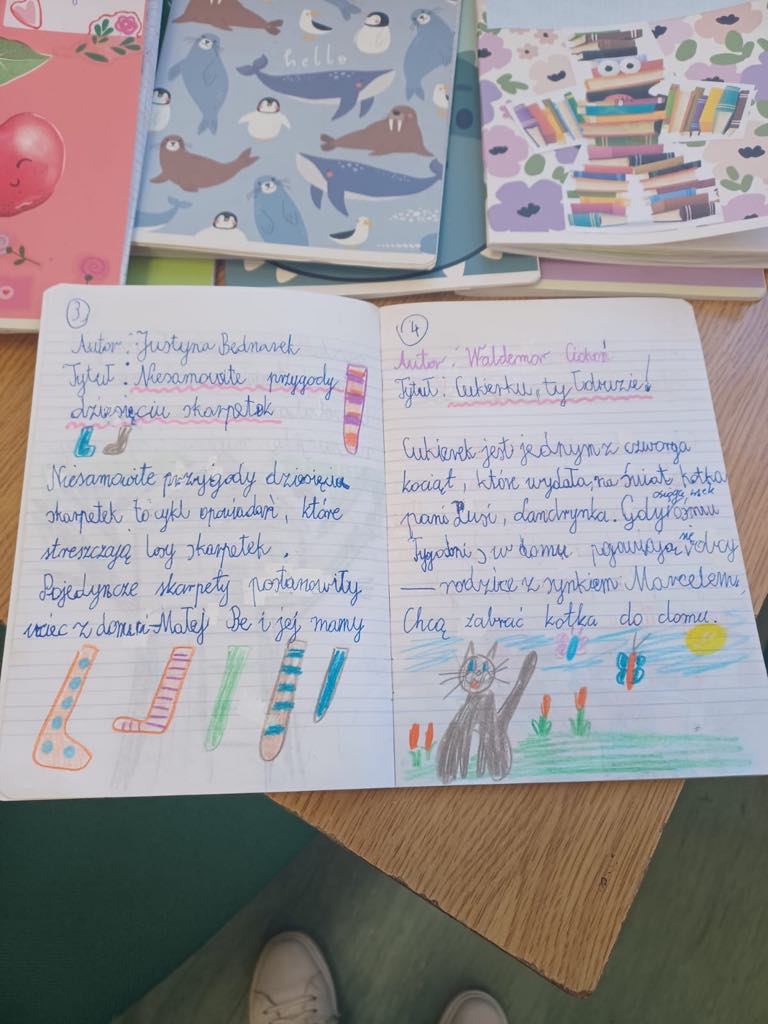 hello
3.
Autor: Justyna Bednarek
Tytuł: Niesamowite przygody
dziesięciu skarpetek
Niesamowite przygody dziesięciu
skarpetek to cykl opowiadań, które
streszczają losy skarpetek.
Pojedyncze skarpety postanowiły
uciec z domu Małej Be i jej mamy
4
Autor: Waldemar Cichoń
Tytuł: Cukierku, ty łobuzie!
Cukierek jest jednym z czworga
kociąt, które wydała na świat kotka
pani Lusi, dandrynka. Gdy osiągą wiek ośmiu
Tygodni, w domu pojawiają się obcy
— rodzice z synkiem Marcelem,
Chcą zabrać kotka do domu.